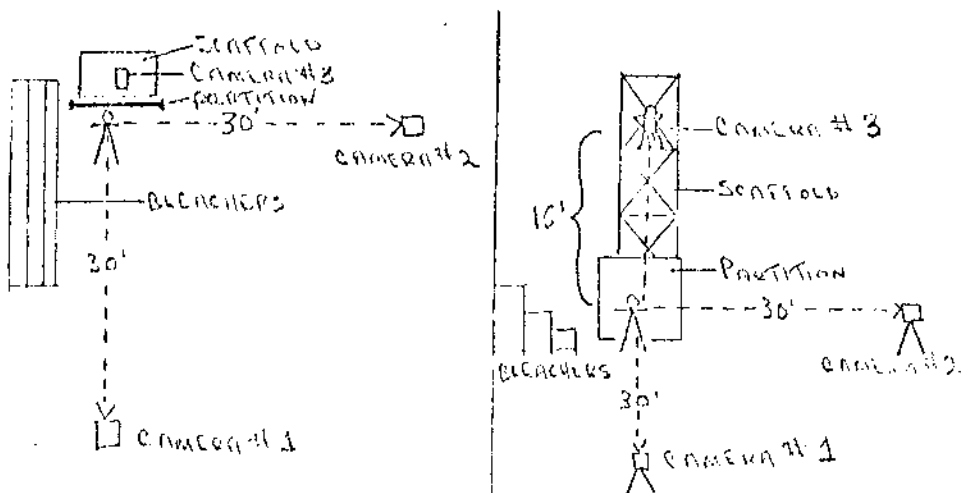 SCAFFOLD
CAMERA #3
PARTITION
30'
CAMERA #2
BLEACHERS
30'
CAMERA #1
CAMERA #3
SCAFFOLD
15'
PARTITION
30'
BLEACHERS
CAMERA #2
30'
CAMERA #1